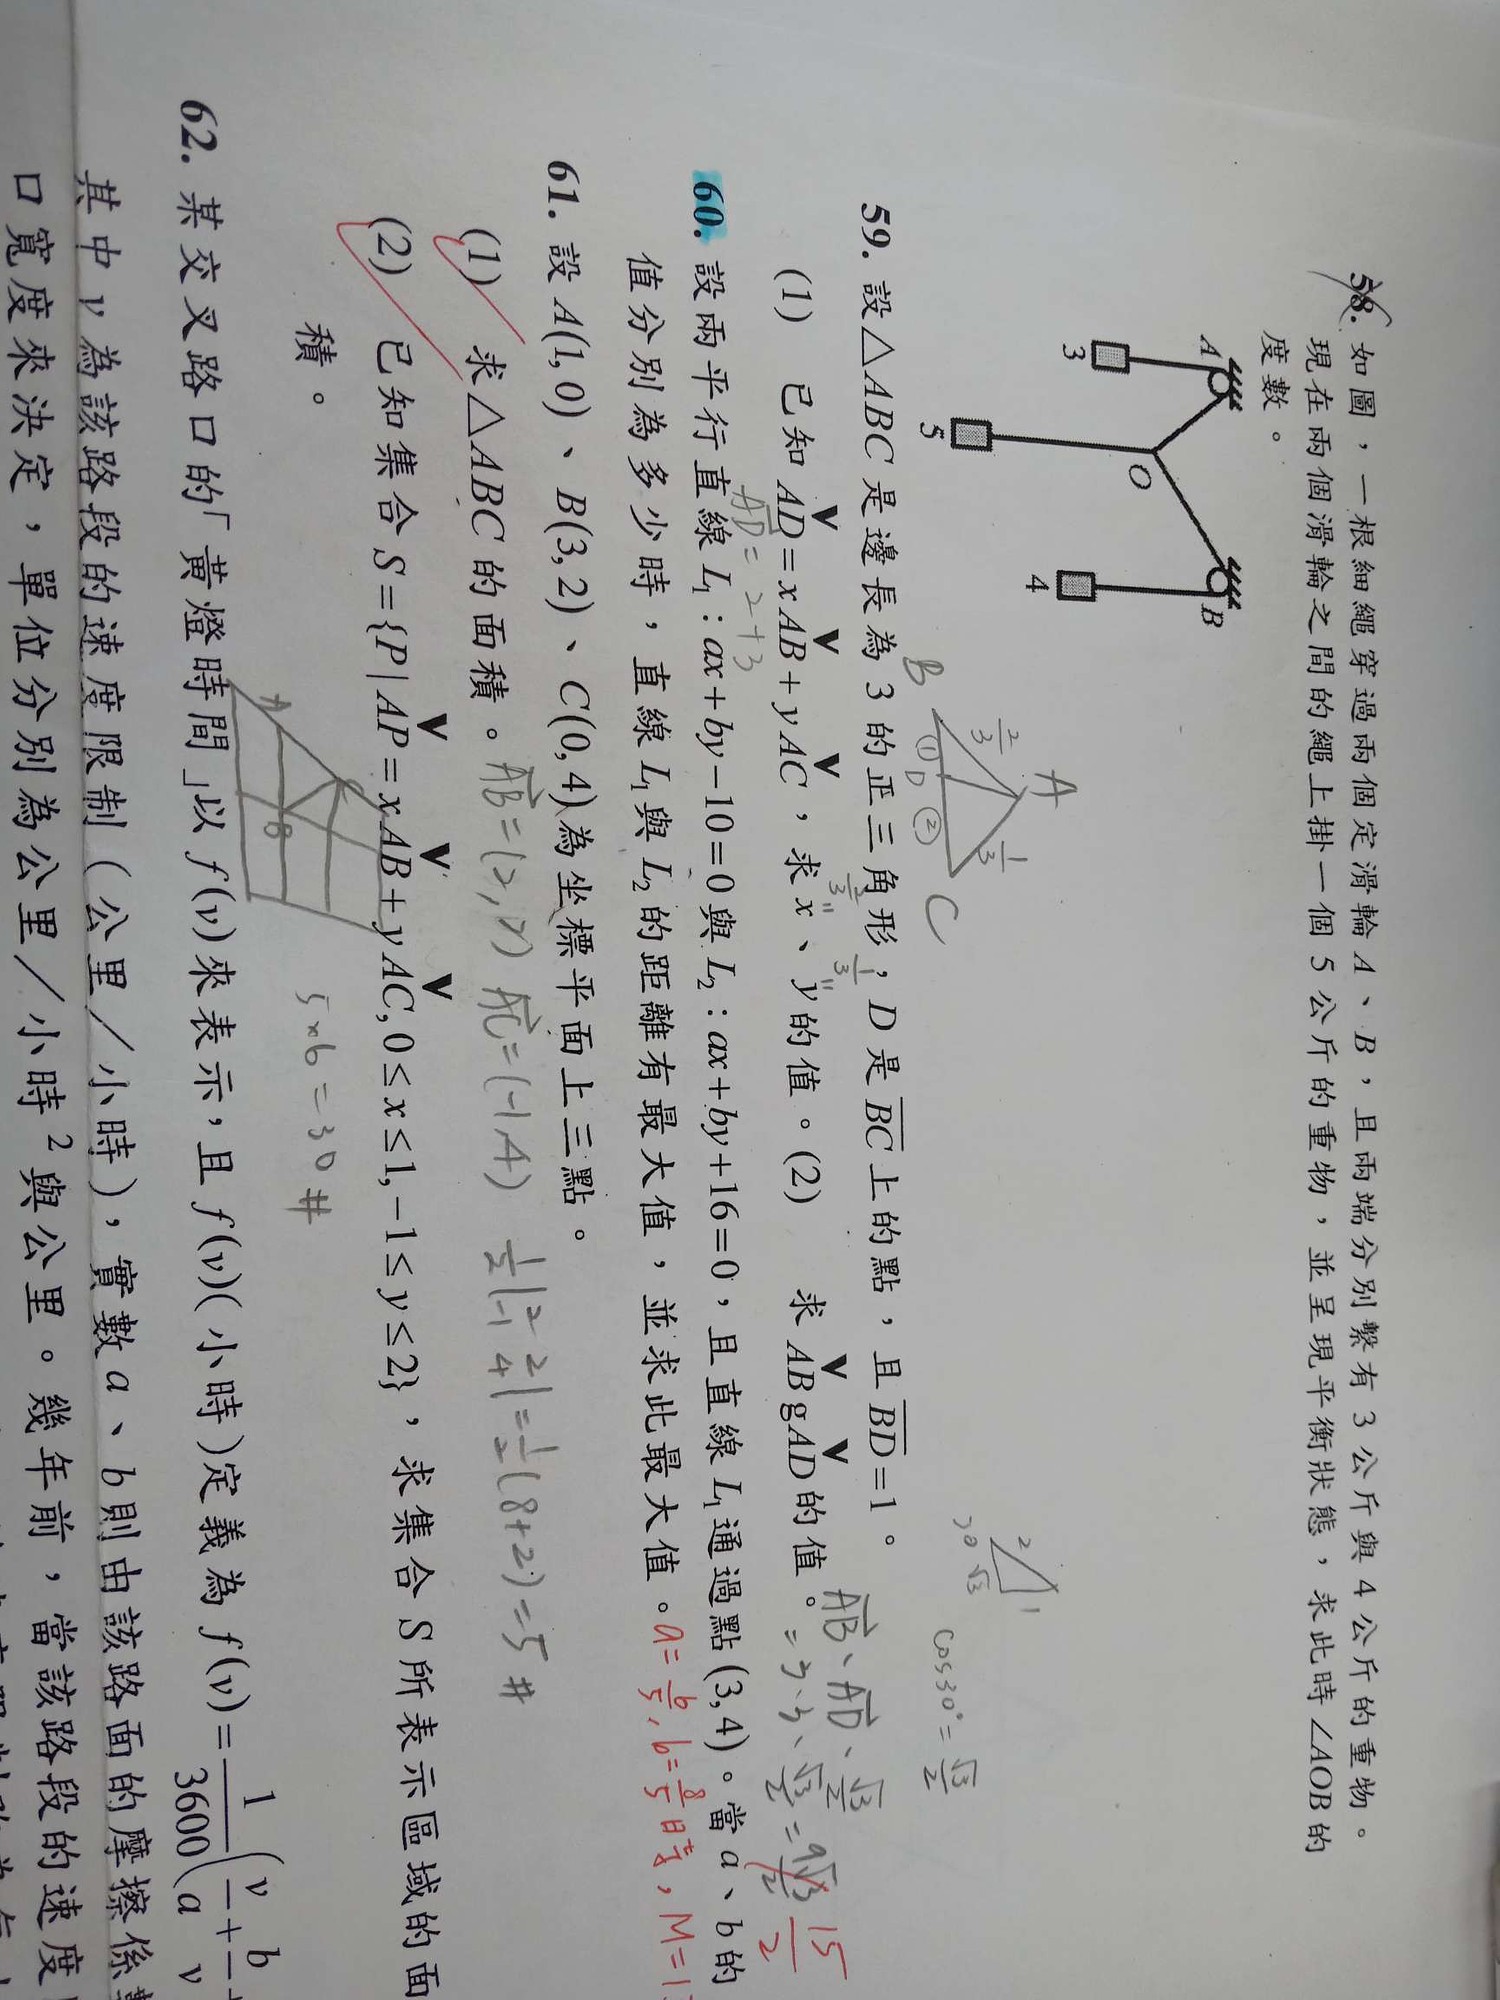 58. 如圖，一根細繩穿過兩個定滑輪 A、B，且兩端分別繫有 3 公斤與 4 公斤的重物。
現在兩個滑輪之間的繩上掛一個 5 公斤的重物，並呈現平衡狀態，求此時 ∠AOB 的
度數。
A
B
O
3
5
4
A
B
C
D
2/3
1/3
①
②
2
1
30
√3
cos30° = √3/2
59. 設 △ABC 是邊長為 3 的正三角形，D 是 BC 上的點，且 BD = 1。
(1) 已知 AD = xAB + yAC，求 x、y 的值。(2) 求 ABgAD 的值。
2/3 1/3
AD = 2+3
AB、AD、√3/2
= 3、3、√3/2 = 9√3/2
15/2
60. 設兩平行直線 L₁ : ax + by − 10 = 0 與 L₂ : ax + by + 16 = 0，且直線 L₁ 通過點 (3, 4)。當 a、b 的
值分別為多少時，直線 L₁ 與 L₂ 的距離有最大值，並求此最大值。
a = 6/5, b = 8/5 時, M = 1
61. 設 A(1, 0)、B(3, 2)、C(0, 4) 為坐標平面上三點。
(1) 求 △ABC 的面積。
AB = (2, 2) AC = (-1, 4) 1/2 |2 2 -1 4| = 1/2 (8+2) = 5 #
(2) 已知集合 S = {P | AP = xAB + yAC, 0 ≤ x ≤ 1, −1 ≤ y ≤ 2}，求集合 S 所表示區域的面
積。
A
B
C
5×6 = 30 #
62. 某交叉路口的「黃燈時間」以 f(v) 來表示，且 f(v)(小時) 定義為 f(v) = 1/3600 (v/a + b/v +
其中 v 為該路段的速度限制 (公里／小時)，實數 a、b 則由該路面的摩擦係
口寬度來決定，單位分別為公里／小時² 與公里。幾年前，當該路段的速度